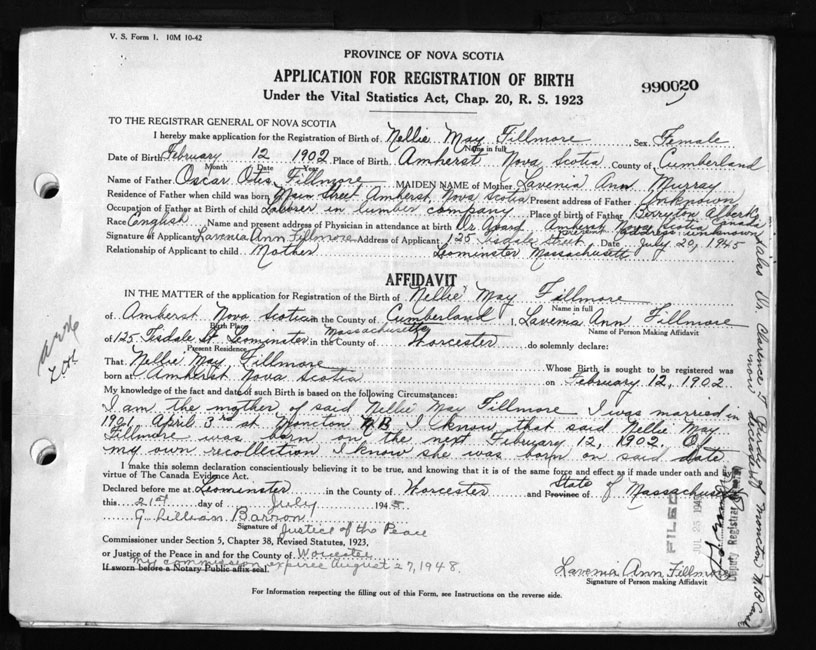 V. S. Form 1. 10M 10-42
PROVINCE OF NOVA SCOTIA
APPLICATION FOR REGISTRATION OF BIRTH
990020
Under the Vital Statistics Act, Chap. 20, R. S. 1923
TO THE REGISTRAR GENERAL OF NOVA SCOTIA
I hereby make application for the Registration of Birth of Nellie May Fillmore Sex Female
Name in full
Date of Birth February 12 1902 Place of Birth Amherst Nova Scotia County of Cumberland
Month Date Year
Name of Father Oscar Otis Fillmore MAIDEN NAME of Mother Lavenia Ann Murray
Residence of Father when child was born Main Street Amherst, Nova Scotia Present address of Father Unknown
Occupation of Father at Birth of child Laborer in lumber company Place of birth of Father Albert Co
Race English Name and present address of Physician in attendance at birth Dr. Amherst Nova Scotia Canada
Present address: unknown
Signature of Applicant Lavenia Ann Fillmore Address of Applicant 125 Tisdale Street Date July 20, 1945
Relationship of Applicant to child Mother Leominster Massachusetts
AFFIDAVIT
IN THE MATTER of the application for Registration of the Birth of Nellie May Fillmore
Name in full
of Amherst Nova Scotia in the County of Cumberland I, Lavenia Ann Fillmore
Birth Place Name of Person Making Affidavit
of 125 Tisdale St Leominster Massachusetts in the County of Worcester do solemnly declare:
Present Residence
That Nellie May Fillmore Whose Birth is sought to be registered was
born at Amherst Nova Scotia on February 12, 1902.
My knowledge of the fact and date of such Birth is based on the following Circumstances:
I am the mother of said Nellie May Fillmore I was married in
1901, April 3rd at Moncton N.B. I know that said Nellie May
Fillmore was born on the next February 12, 1902. Of
my own recollection I know she was born on said date
I make this solemn declaration conscientiously believing it to be true, and knowing that it is of the same force and effect as if made under oath and by
virtue of The Canada Evidence Act.
Declared before me at Leominster in the County of Worcester and Province of State of Massachusetts
this 21st day of July 1945
G. Lillian Barron
Signature of Justice of the Peace
Commissioner under Section 5, Chapter 38, Revised Statutes, 1923,
or Justice of the Peace in and for the County of Worcester
My commission expires August 27, 1948.
If sworn before a Notary Public affix seal.
Lavenia Ann Fillmore
Signature of Person making Affidavit
For Information respecting the filling out of this Form, see Instructions on the reverse side.
FILED
Deputy Registrar General